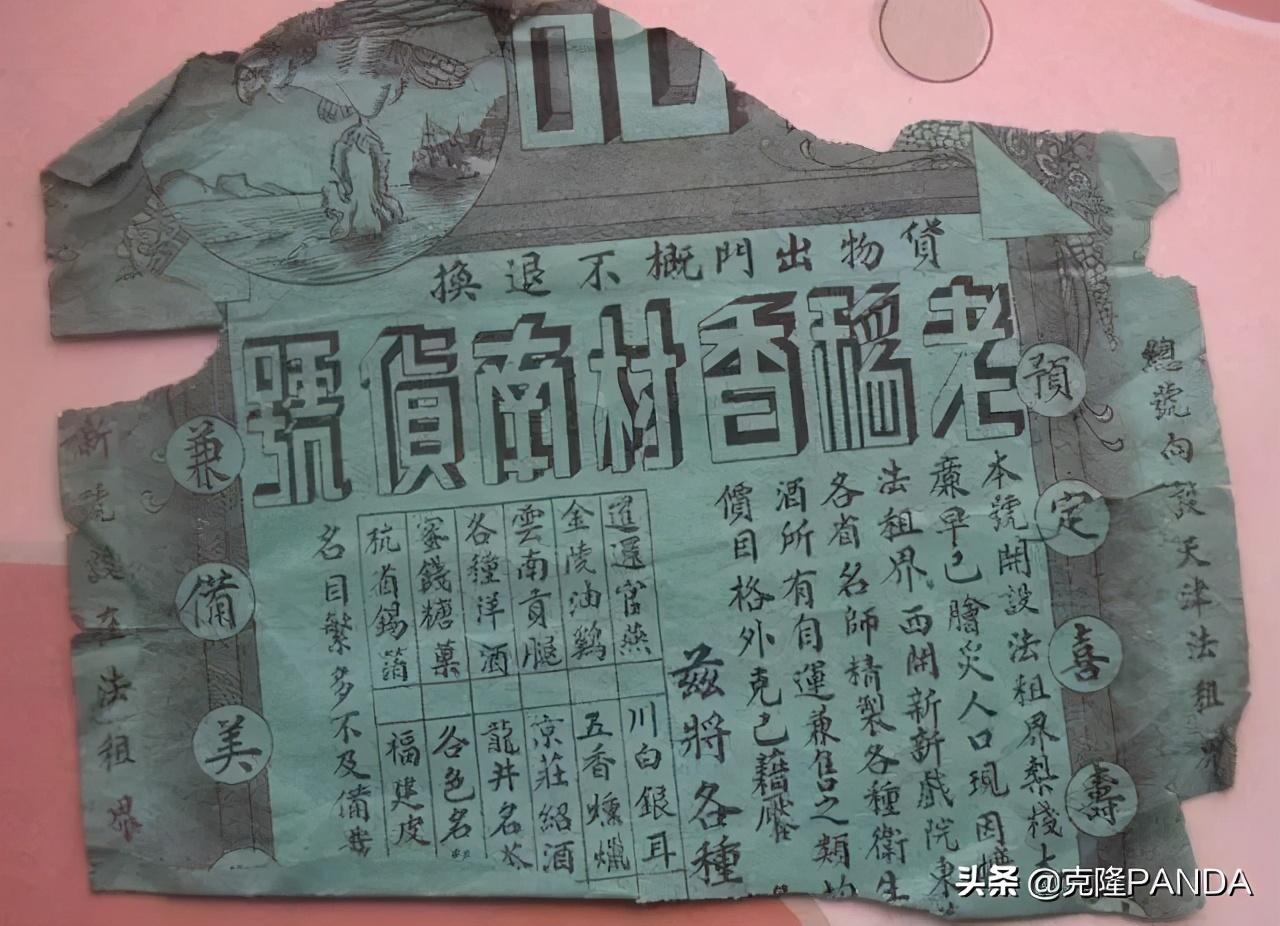 記
貨物出門概不退換
老稻香村南貨號
總號向設天津法租界
預定喜壽
本號開設法租界梨棧大
廉早已膾炙人口現因擴
法租界西開新新戲院東
各省名師精製各種衛生
酒所有自運兼售之類均
價目格外克己
茲將各種
暹邏官燕
金陵油鷄
雲南貢腿
各種洋酒
蜜餞糖菓
川白銀耳
五香燻臘
京莊紹酒
龍井名茶
各色名
福建皮
名目繁多不及備載
兼備美
新號設在法租界
头条 @克隆PANDA